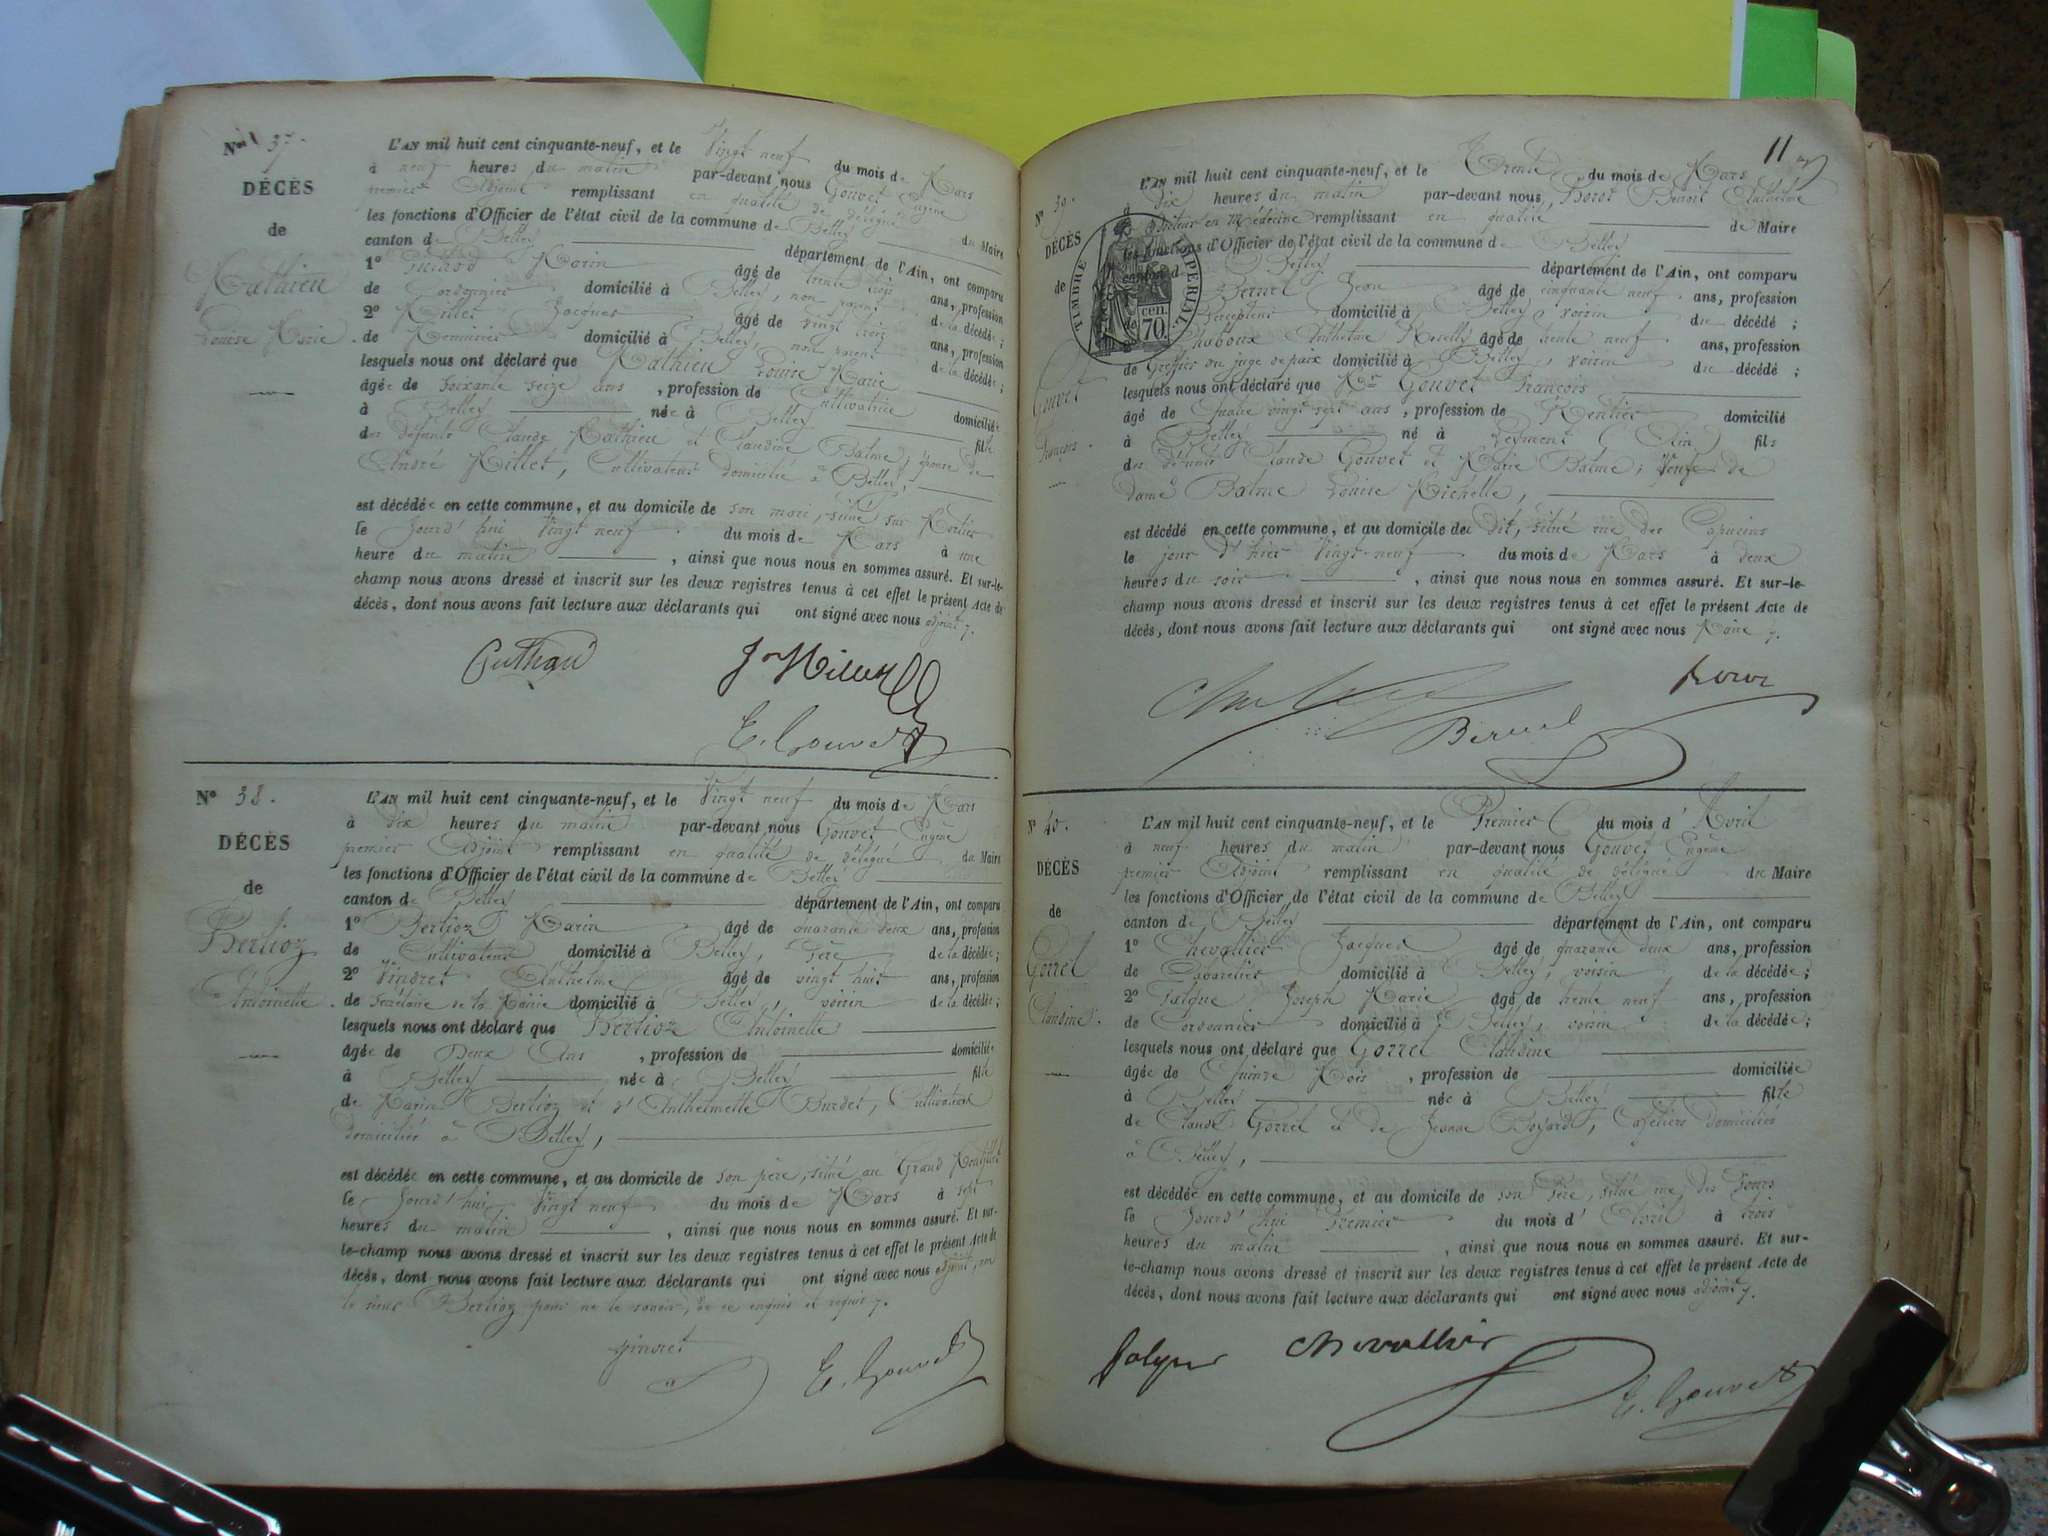 Nos 37.
DÉCÈS
de
Mathieu
Louise Marie.
L'AN mil huit cent cinquante-neuf, et le Vingt neuf du mois de Mars
à neuf heures du matin par-devant nous Gouvet Eugène
premier Adjoint remplissant en qualité de délégué du Maire
les fonctions d'Officier de l'état civil de la commune de Belley
canton de Belley département de l'Ain, ont comparu
1° Marin âgé de trente trois ans, profession
de Cordonnier domicilié à Belley, non parent de la décédée;
2° Millet Jacques âgé de vingt trois ans, profession
de Menuisier domicilié à Belley, non parent de la décédée;
lesquels nous ont déclaré que Mathieu Louise Marie
âgée de soixante seize ans, profession de Cultivatrice domiciliée
à Belley née à Belley fille
des défunts Claude Mathieu et Claudine Balme; épouse de
André Millet, Cultivateur domicilié à Belley,
est décédée en cette commune, et au domicile de son mari, situé sur Mortier
le Jourd'hui Vingt neuf du mois de Mars à une
heure du matin, ainsi que nous nous en sommes assuré. Et sur-le-
champ nous avons dressé et inscrit sur les deux registres tenus à cet effet le présent Acte de
décès, dont nous avons fait lecture aux déclarants qui ont signé avec nous adjoint 7.
E. Gouvet
N° 38.
DÉCÈS
de
Berlioz
Antoinette.
L'AN mil huit cent cinquante-neuf, et le Vingt neuf du mois de Mars
à dix heures du matin par-devant nous Gouvet Eugène
premier Adjoint remplissant en qualité de délégué du Maire
les fonctions d'Officier de l'état civil de la commune de Belley
canton de Belley département de l'Ain, ont comparu
1° Berlioz Marin âgé de quarante deux ans, profession
de Cultivateur domicilié à Belley, Père de la décédée;
2° Vindret Anthelme âgé de vingt huit ans, profession
de Secrétaire de la Mairie domicilié à Belley, voisin de la décédée;
lesquels nous ont déclaré que Berlioz Antoinette
âgée de Deux Ans, profession de domiciliée
à Belley née à Belley fille
de Marin Berlioz et d'Anthelmette Burdet, Cultivateurs
domiciliés à Belley,
est décédée en cette commune, et au domicile de son père, situé au Grand
le Jourd'hui Vingt neuf du mois de Mars à sept
heures du matin, ainsi que nous nous en sommes assuré. Et sur-
le-champ nous avons dressé et inscrit sur les deux registres tenus à cet effet le présent Acte de
décès, dont nous avons fait lecture aux déclarants qui ont signé avec nous adjoint, non
le sieur Berlioz pour ne le savoir, de ce enquis et requis 7.
Vindret
E. Gouvet
11
N° 39.
DÉCÈS
de
Gouvet
François.
TIMBRE IMPERIAL
cen.
70.
L'AN mil huit cent cinquante-neuf, et le Trente du mois de Mars
à dix heures du matin par-devant nous Benoit Anthelme
Docteur en Médecine remplissant en qualité de Maire
les fonctions d'Officier de l'état civil de la commune de Belley
canton de Belley département de l'Ain, ont comparu
Jean âgé de cinquante neuf ans, profession
domicilié à Belley, voisin du décédé;
Anthelme âgé de trente neuf ans, profession
de Greffier du juge de paix domicilié à Belley, voisin du décédé;
lesquels nous ont déclaré que Mr Gouvet François
âgé de Quatre vingt sept ans, profession de Rentier domicilié
à Belley né à Leyment (Ain) fils
des défunts Claude Gouvet et Marie Balme; Veuf de
dame Balme Louise Michelle,
est décédé en cette commune, et au domicile du dit, situé rue des Capucins
le jour d'hier Vingt-neuf du mois de Mars à deux
heures du soir, ainsi que nous nous en sommes assuré. Et sur-le-
champ nous avons dressé et inscrit sur les deux registres tenus à cet effet le présent Acte de
décès, dont nous avons fait lecture aux déclarants qui ont signé avec nous Maire 7.
N° 40.
DÉCÈS
de
Gorrel
Claudine.
L'AN mil huit cent cinquante-neuf, et le Premier du mois d'Avril
à neuf heures du matin par-devant nous Gouvet Eugène
premier Adjoint remplissant en qualité de délégué du Maire
les fonctions d'Officier de l'état civil de la commune de Belley
canton de Belley département de l'Ain, ont comparu
1° Chevallier Jacques âgé de quarante deux ans, profession
de Cabaretier domicilié à Belley, voisin de la décédée;
2° Falque Joseph Marie âgé de trente neuf ans, profession
de Cordonnier domicilié à Belley, voisin de la décédée;
lesquels nous ont déclaré que Gorrel Claudine
âgée de Quinze Mois, profession de domiciliée
à Belley née à Belley fille
de Claude Gorrel et de Jeanne Boyard, Cafetiers domiciliés
à Belley,
est décédée en cette commune, et au domicile de son Père, situé rue des Fours
le Jourd'hui Premier du mois d'Avril à trois
heures du matin, ainsi que nous nous en sommes assuré. Et sur-
le-champ nous avons dressé et inscrit sur les deux registres tenus à cet effet le présent Acte de
décès, dont nous avons fait lecture aux déclarants qui ont signé avec nous adjoint 7.
falque chevallier
E. Gouvet